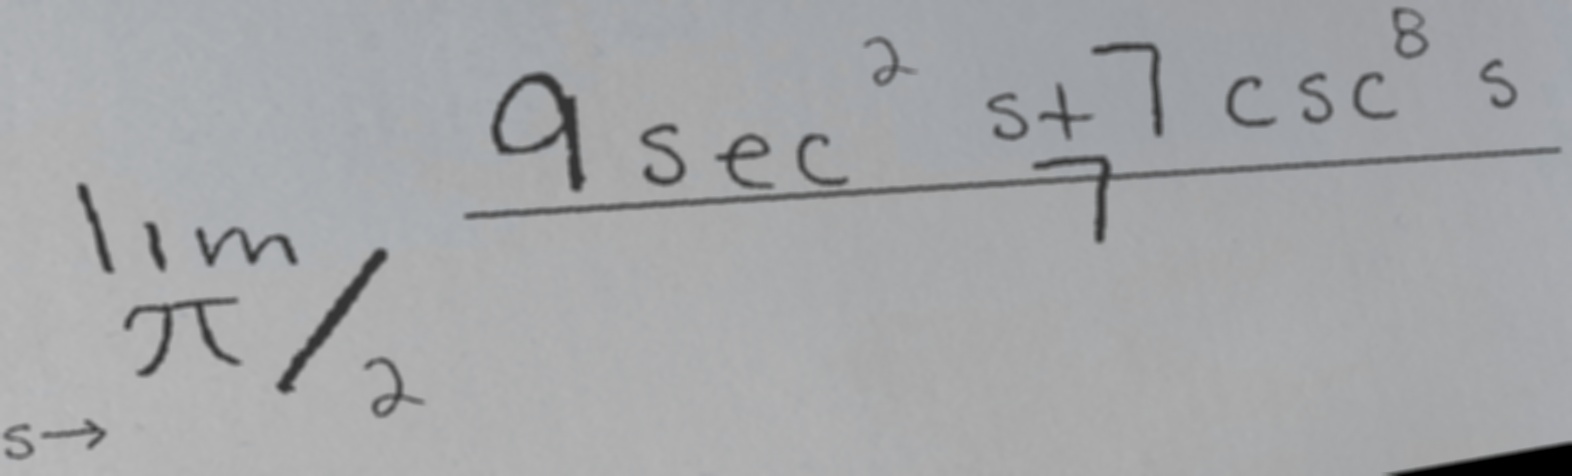 lim s→π/2 \frac{9 sec^2 s+7 csc^8 s}{7}